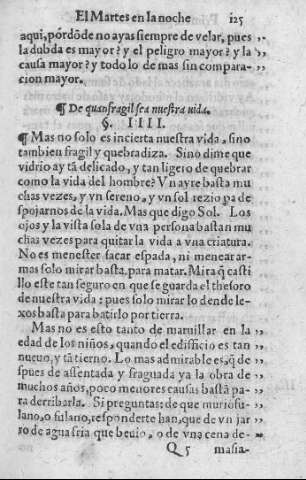 El Martes en la noche 125
aqui, pordõde no ayas siempre de velar, pues
la dubda es mayor? y el peligro mayor? y la
causa mayor? y todo lo de mas sin compara-
cion mayor.
¶ De quan fragil sea nuestra vida.
§. IIII.
¶ Mas no solo es incierta nuestra vida, sino
tambien fragil y quebradiza. Sino dime que
vidrio ay tã delicado, y tan ligero de quebrar
como la vida del hombre? Vn ayre basta mu
chas vezes, y vn sereno, y vn sol rezio pa de-
spojarnos de la vida. Mas que digo Sol. Los
ojos y la vista sola de vna persona bastan mu
chas vezes para quitar la vida a vna criatura.
No es menester sacar espada, ni menear ar-
mas solo mirar basta, para matar. Mira q̃ casti
llo este tan seguro en que se guarda el thesoro
de nuestra vida: pues solo mirarlo dende le-
xos basta para batirlo por tierra.
Mas no es esto tanto de marauillar en la
edad de los niños, quando el edificio es tan
nueuo, y tã tierno. Lo mas admirable es, q̃ de
spues de assentada y fraguada ya la obra de
muchos años, poco menores causas bastã pa-
ra derribarla. Si preguntas: de que murio fu-
lano, o sulano, responderte han, que de vn jar
ro de agua fria que beuio, o de vna cena de-
Q 5 masia-